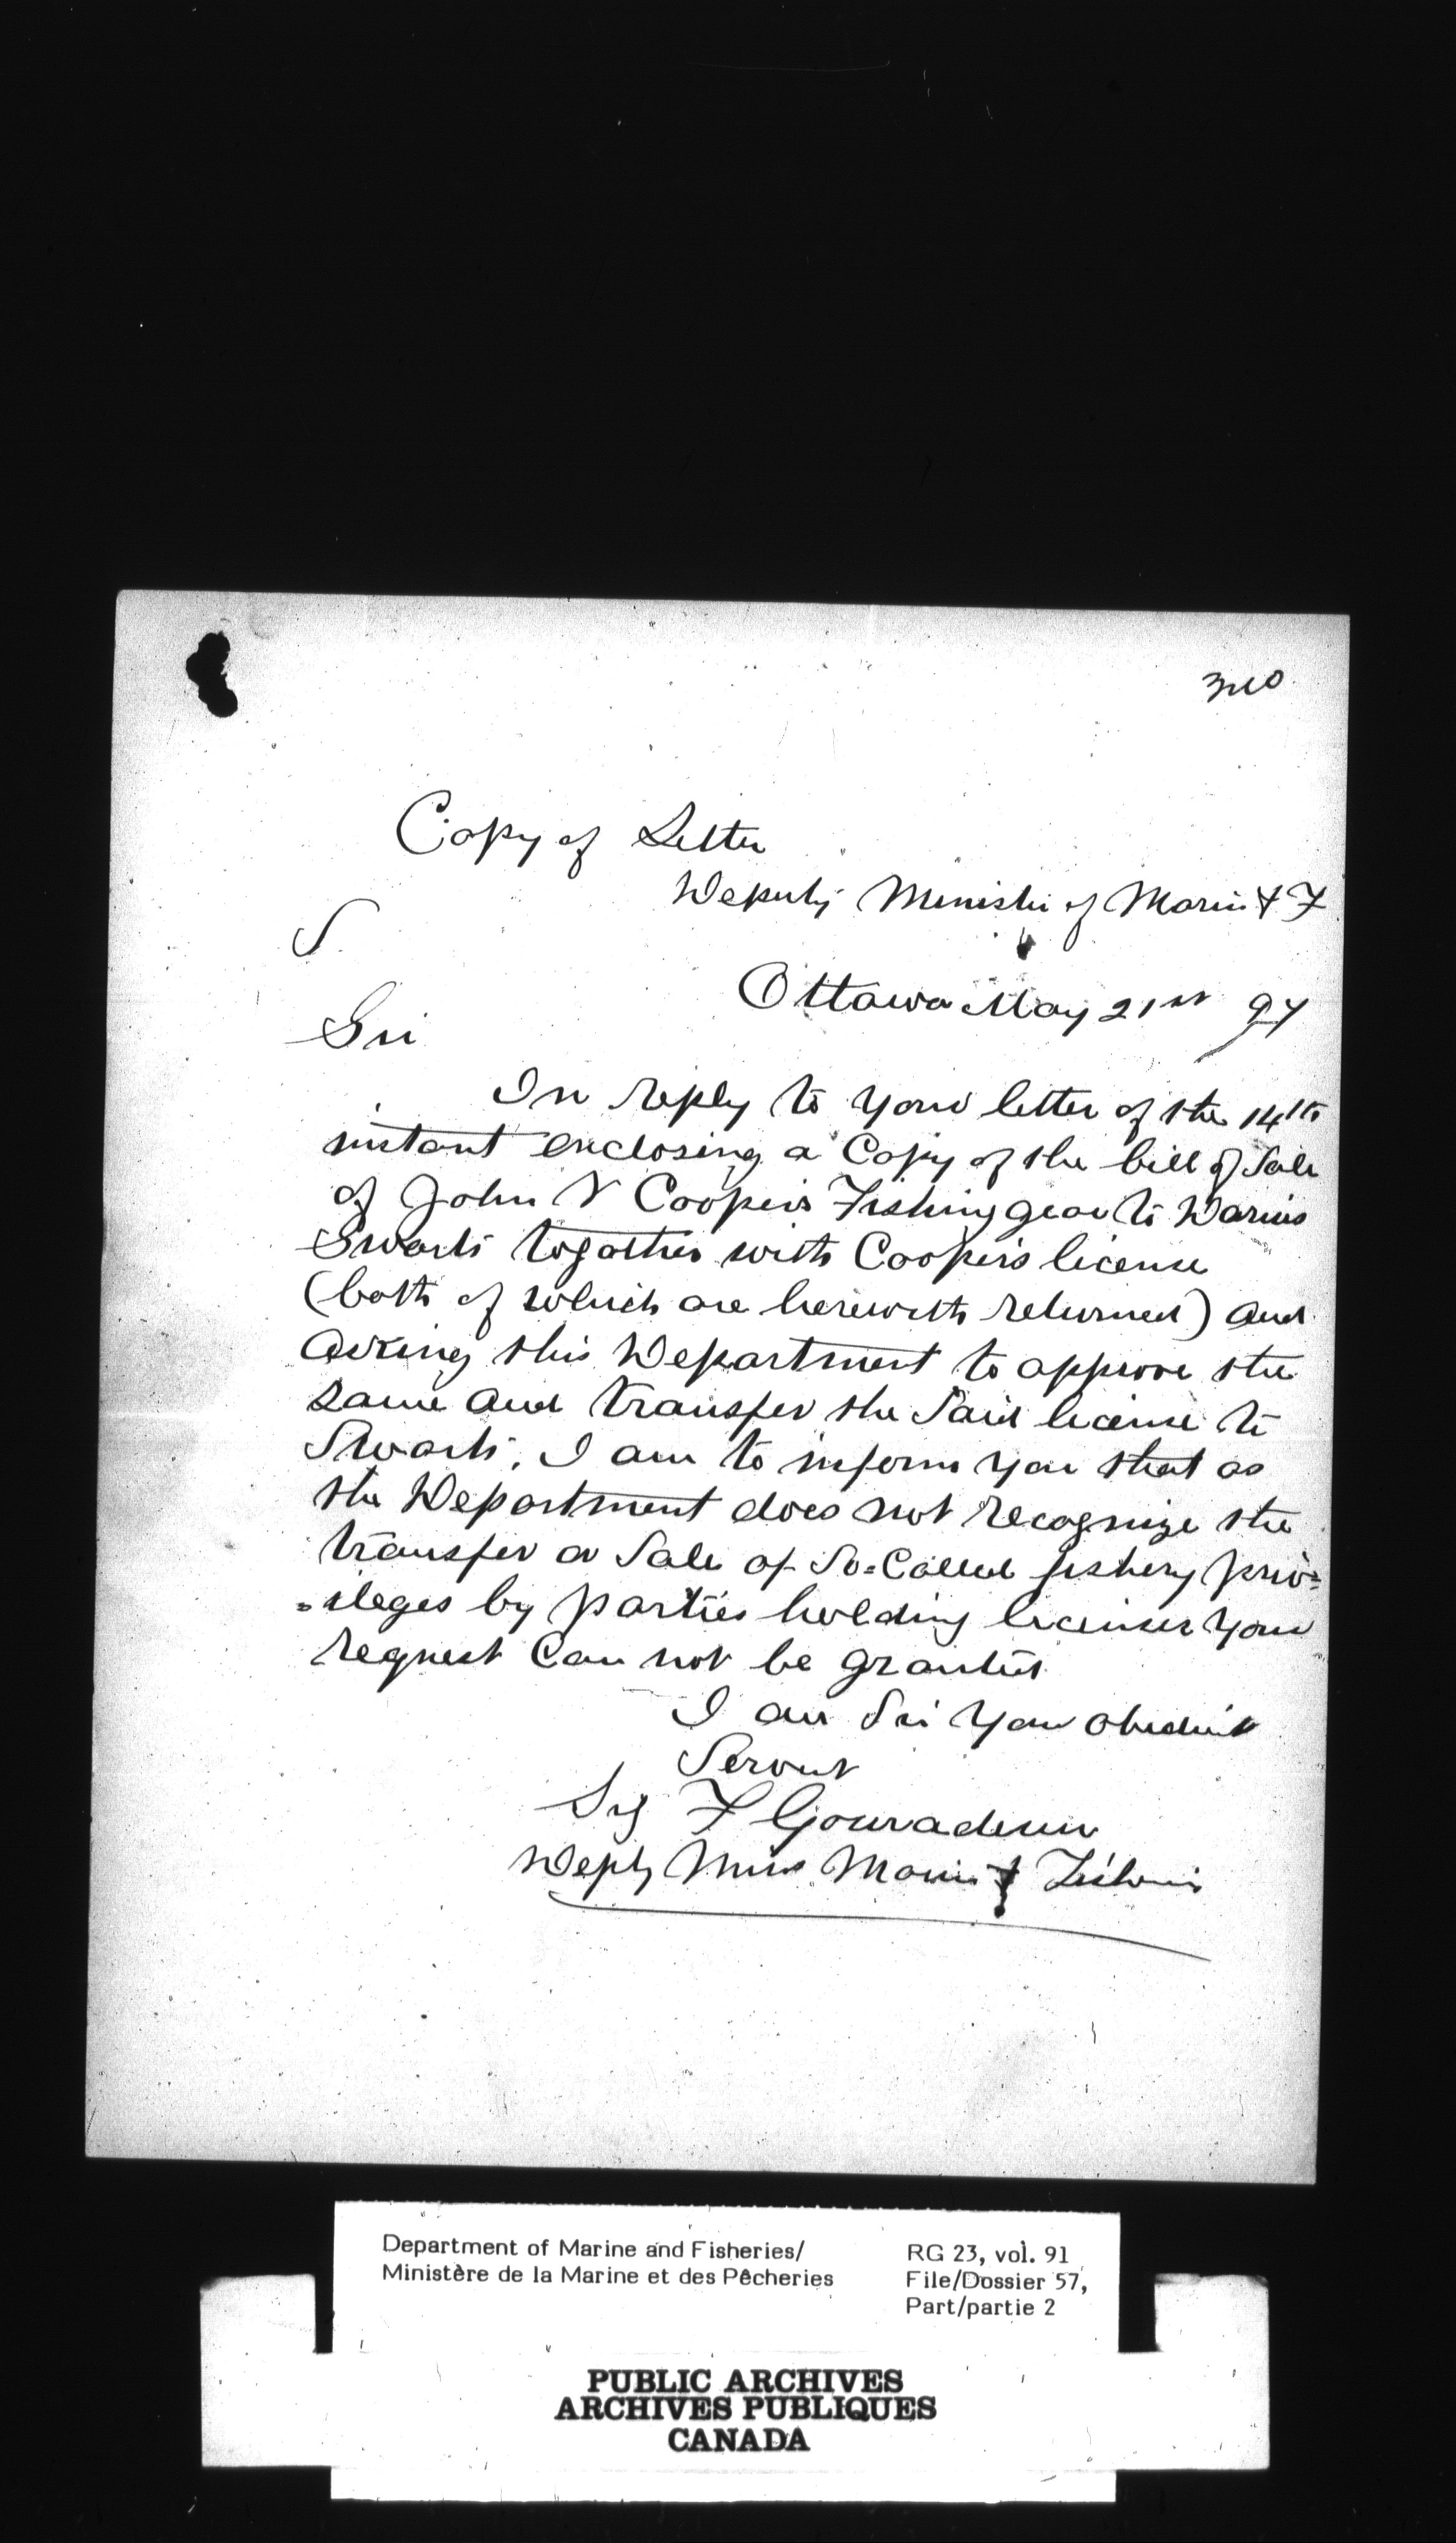 Copy of Letter
Deputy Minister of Marin & F
S
Ottawa May 21st 97
Sir
In reply to your letter of the 14th
instant enclosing a Copy of the bill of Sale
of John V Cooper's Fishing gear to Darius
Swarts together with Cooper's license
(both of which are herewith returned) and
asking this Department to approve the
same and transfer the said license to
Swarts, I am to inform you that as
the Department does not recognize the
transfer or Sale of So=Called fishery priv=
=ileges by parties holding licenses your
request Can not be granted
I am Sir Your obedient
Servant
Sig F Gouradeau
Depty Mins Marin & Fisheries
Department of Marine and Fisheries/
Ministère de la Marine et des Pêcheries
RG 23, vol. 91
File/Dossier 57,
Part/partie 2
PUBLIC ARCHIVES
ARCHIVES PUBLIQUES
CANADA